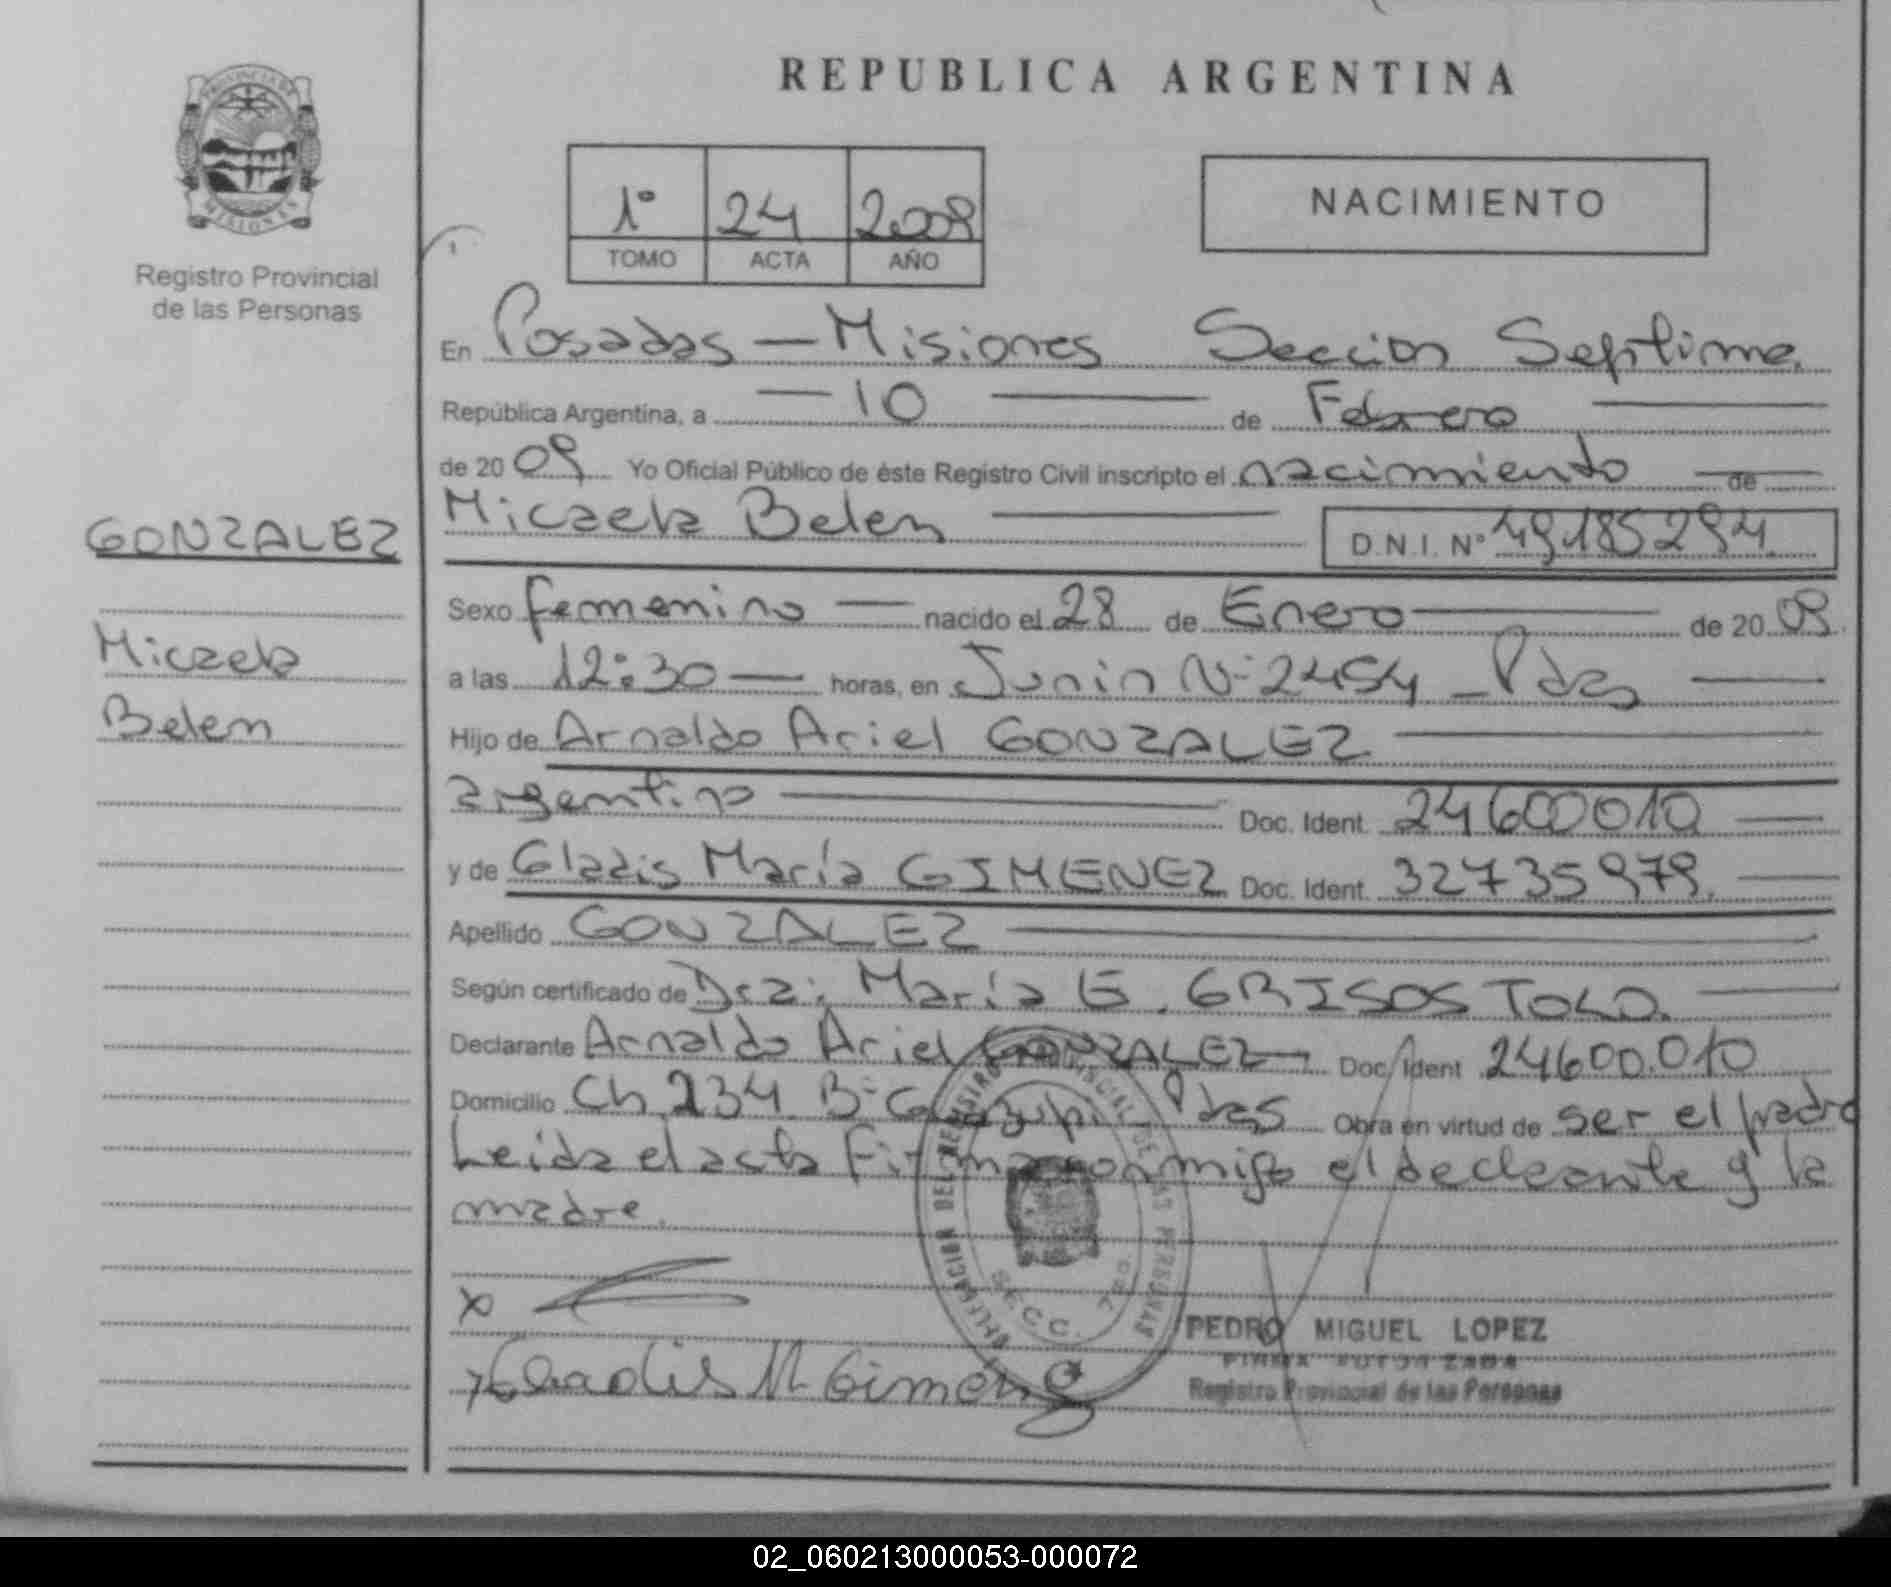 REPUBLICA ARGENTINA
PROVINCIA DE
MISIONES
Registro Provincial
de las Personas
1° 24 2.009
TOMO ACTA AÑO
NACIMIENTO
En Posadas — Misiones Seccion Septima.
República Argentina, a — 10 — de Febrero —
de 20 09 Yo Oficial Público de éste Registro Civil inscripto el nacimiento — de —
Micaela Belen — D.N.I. N° 49.185.294.
GONZALEZ
Micaela
Belen
Sexo femenino — nacido el 28 de Enero — de 20 09.
a las 12:30 — horas, en Junin N° 2454 _ Pdas —
Hijo de Arnaldo Ariel GONZALEZ —
argentino — Doc. Ident. 24600010 —
y de Gladis María GIMENEZ Doc. Ident. 32735979. —
Apellido GONZALEZ —
Según certificado de Dra: María E. GRISOSTOLO. —
Declarante Arnaldo Ariel GONZALEZ — Doc. Ident 24600.010
Domicilio Ch 234 B° Pdas Obra en virtud de ser el padre
Leida el acta Firma conmigo el declarante y la
madre.
DELEGACION DEL REGISTRO PROVINCIAL DE LAS PERSONAS
SECC. 7ma.
x
x Gladis M Gimenez
PEDRO MIGUEL LOPEZ
FIRMA AUTORIZADA
Registro Provincial de las Personas
02_060213000053-000072